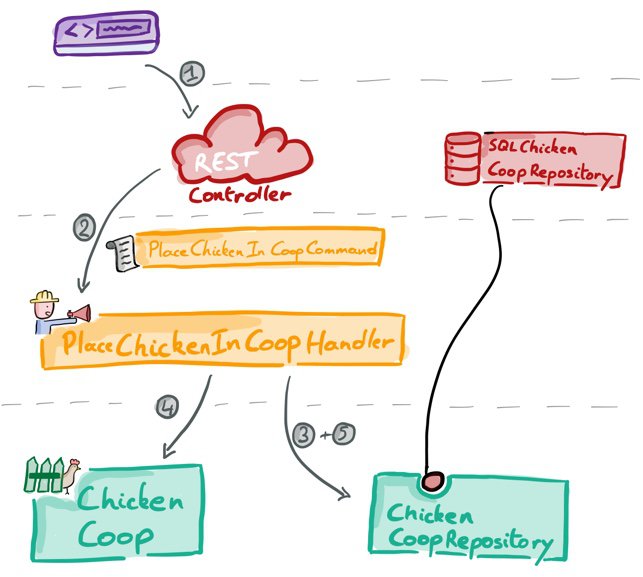 < >
1
REST
Controller
SQLChicken
CoopRepository
2
PlaceChicken In CoopCommand
PlaceChickenInCoopHandler
4
3 + 5
Chicken
Coop
Chicken
CoopRepository